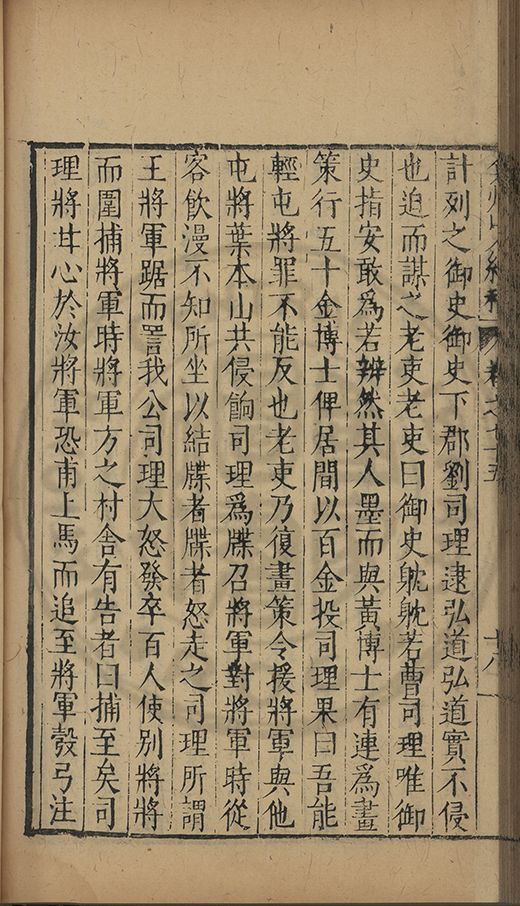 計列之御史御史下郡劉司理逮弘道弘道實不侵
也迫而謀之老吏老吏曰御史躭躭若曹司理唯御
史指安敢為若辨然其人墨而與黃博士有連為畫
策行五十金博士俾居間以百金投司理果曰吾能
輕屯將罪不能反也老吏乃復畫策令援將軍與他
屯將葉本山共侵餉司理為牒召將軍對將軍時從
客飲漫不知所坐以結牒者牒者怒走之司理所謂
王將軍踞而詈我公司理大怒發卒百人使別將將
而圍捕將軍時將軍方之村舍有告者曰捕至矣司
理將甘心於汝將軍恐甫上馬而追至將軍彀弓注